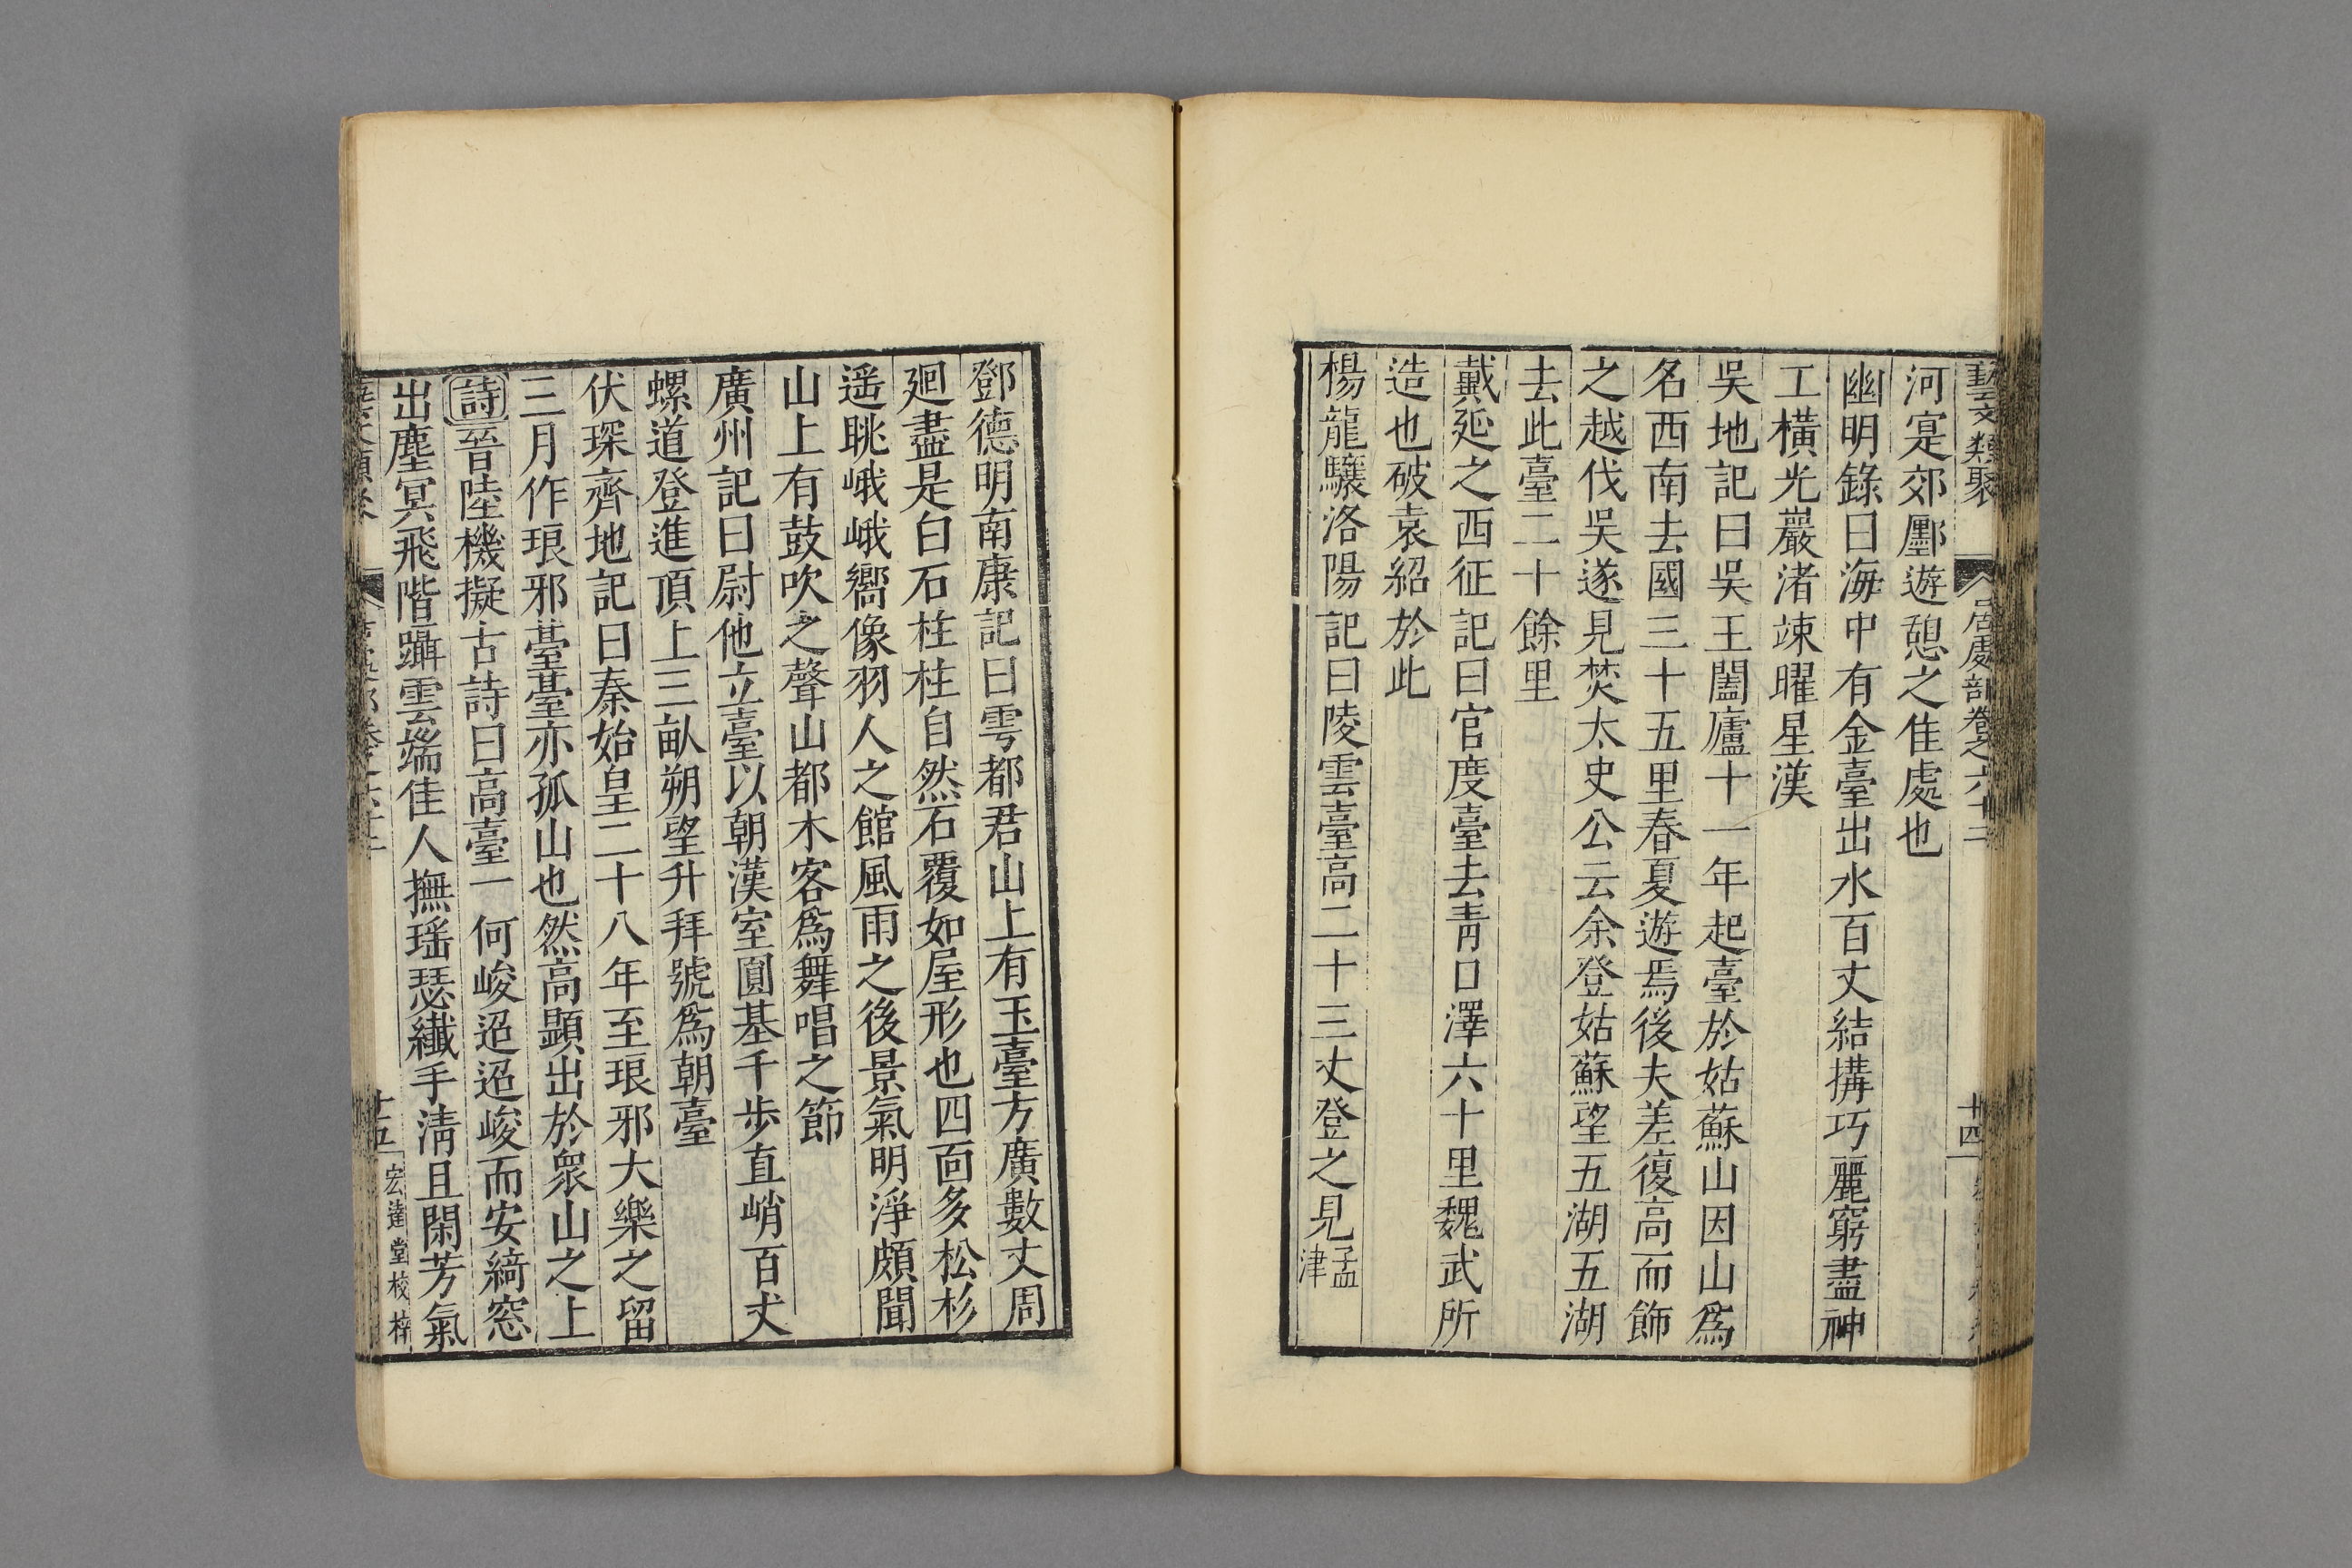 藝文類聚 居處部卷之六十二 十四
河寔郊鄽遊憩之佳處也
幽明錄曰海中有金臺出水百丈結搆巧麗窮盡神
工橫光巖渚竦曜星漢
吳地記曰吳王闔廬十一年起臺於姑蘇山因山爲
名西南去國三十五里春夏遊焉後夫差復高而飾
之越伐吳遂見焚太史公云余登姑蘇望五湖五湖
去此臺二十餘里
戴延之西征記曰官度臺去青口澤六十里魏武所
造也破袁紹於此
楊龍驤洛陽記曰陵雲臺高二十三丈登之見孟津
鄧德明南康記曰雩都君山上有玉臺方廣數丈周
廻盡是白石柱柱自然石覆如屋形也四面多松杉
遥眺峨峨嚮像羽人之館風雨之後景氣明淨頗聞
山上有鼓吹之聲山都木客爲舞唱之節
廣州記曰尉他立臺以朝漢室圓基千歩直峭百丈
螺道登進頂上三畝朔望升拜號爲朝臺
伏琛齊地記曰秦始皇二十八年至琅邪大樂之留
三月作琅邪臺臺亦孤山也然高顯出於衆山之上
詩晉陸機擬古詩曰高臺一何峻迢迢峻而安綺窓
出塵冥飛階躡雲端佳人撫瑶瑟纖手清且閑芳氣
十五 宏達堂校梓